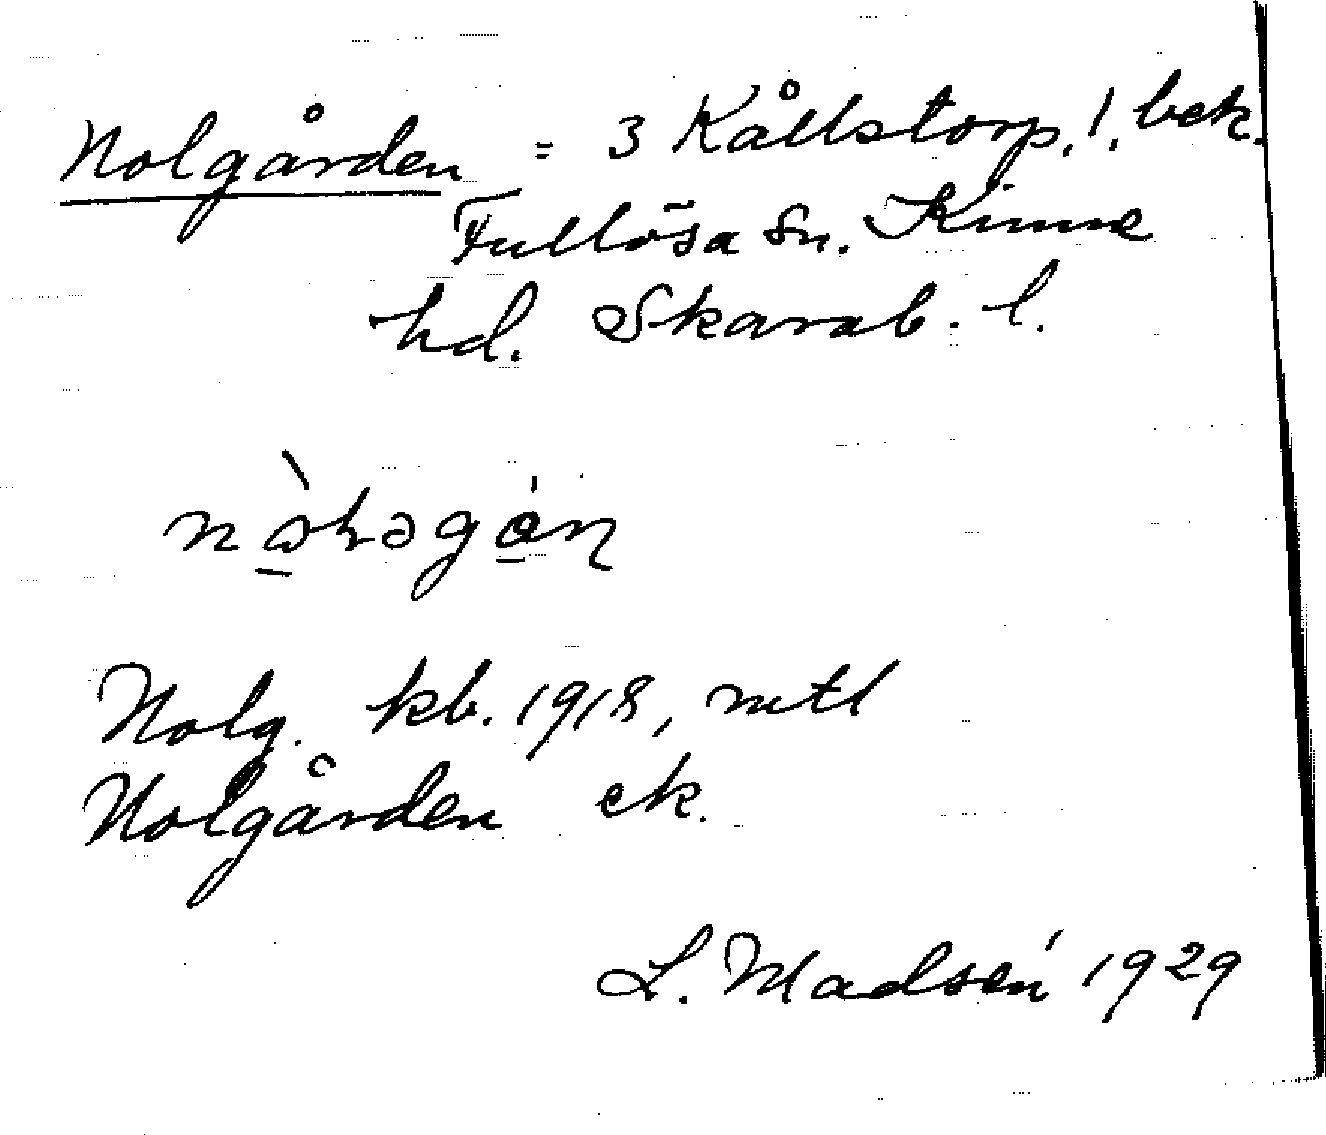 Nolgården = 3 Kållstorp, 1, bek.
Fullösa sn. Kinne
hd. Skarab. l.
Nolg. kb. 1918, mtl
Nolgården ek.
L. Madsén 1929